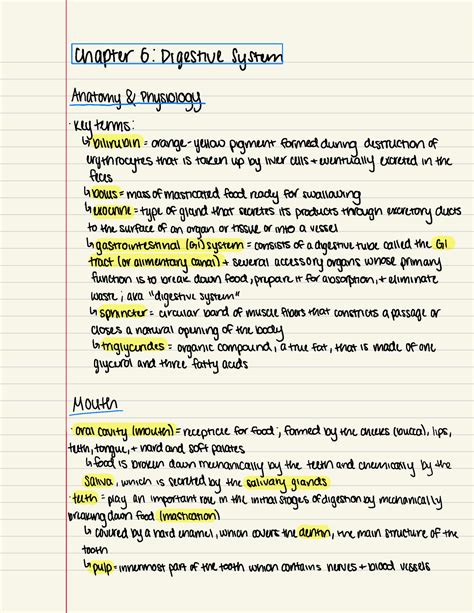 Chapter 6: Digestive System
Anatomy & Physiology
· Key terms:
↳ bilirubin = orange-yellow pigment formed during destruction of
erythrocytes that is taken up by liver cells + eventually excreted in the
feces
↳ bolus = mass of masticated food ready for swallowing
↳ exocrine = type of gland that secretes its products through excretory ducts
to the surface of an organ or tissue or into a vessel
↳ gastrointestinal (GI) system = consists of a digestive tube called the GI
tract (or alimentary canal) + several accessory organs whose primary
function is to break down food, prepare it for absorption, + eliminate
waste; aka "digestive system"
↳ sphincter = circular band of muscle fibers that constricts a passage or
closes a natural opening of the body
↳ triglycerides = organic compound, a true fat, that is made of one
glycerol and three fatty acids
Mouth
· oral cavity (mouth) = recepticle for food; formed by the cheeks (bucca), lips,
teeth, tongue, + hard and soft palates
↳ food is broken down mechanically by the teeth and chemically by the
saliva, which is secreted by the salivary glands
· teeth = play an important role in the initial stages of digestion by mechanically
breaking down food (mastication)
↳ covered by a hard enamel, which covers the dentin, the main structure of the
tooth
↳ pulp = innermost part of the tooth which contains nerves + blood vessels